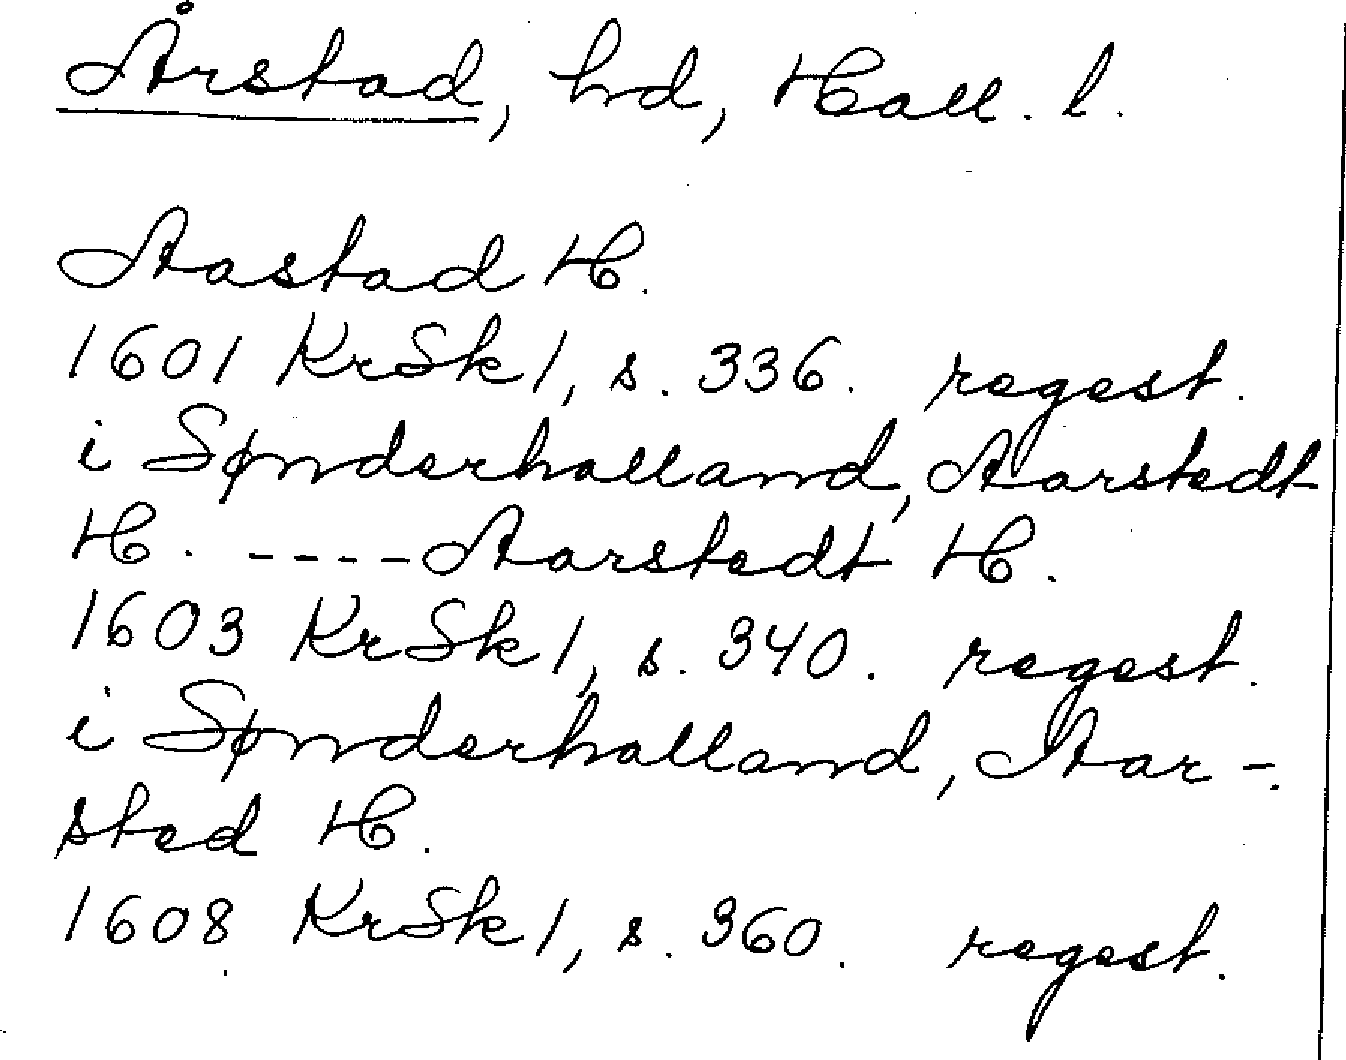 Årstad, hd, Hall. l.
Aastad H.
1601 KrSk 1, s. 336. regest.
i Sønderhalland, Aarstedt
H. ---- Aarstedt H.
1603 KrSk 1, s. 340. regest.
i Sønderhalland, Aar-
sted H.
1608 KrSk 1, s. 360. regest.